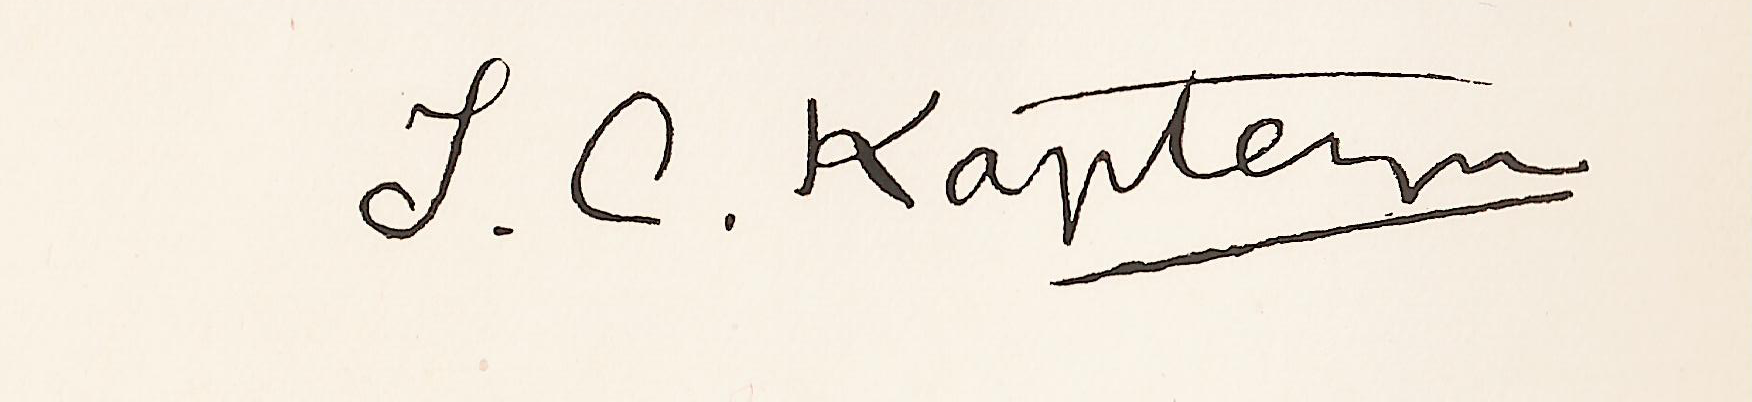 J. C. Kapteyn